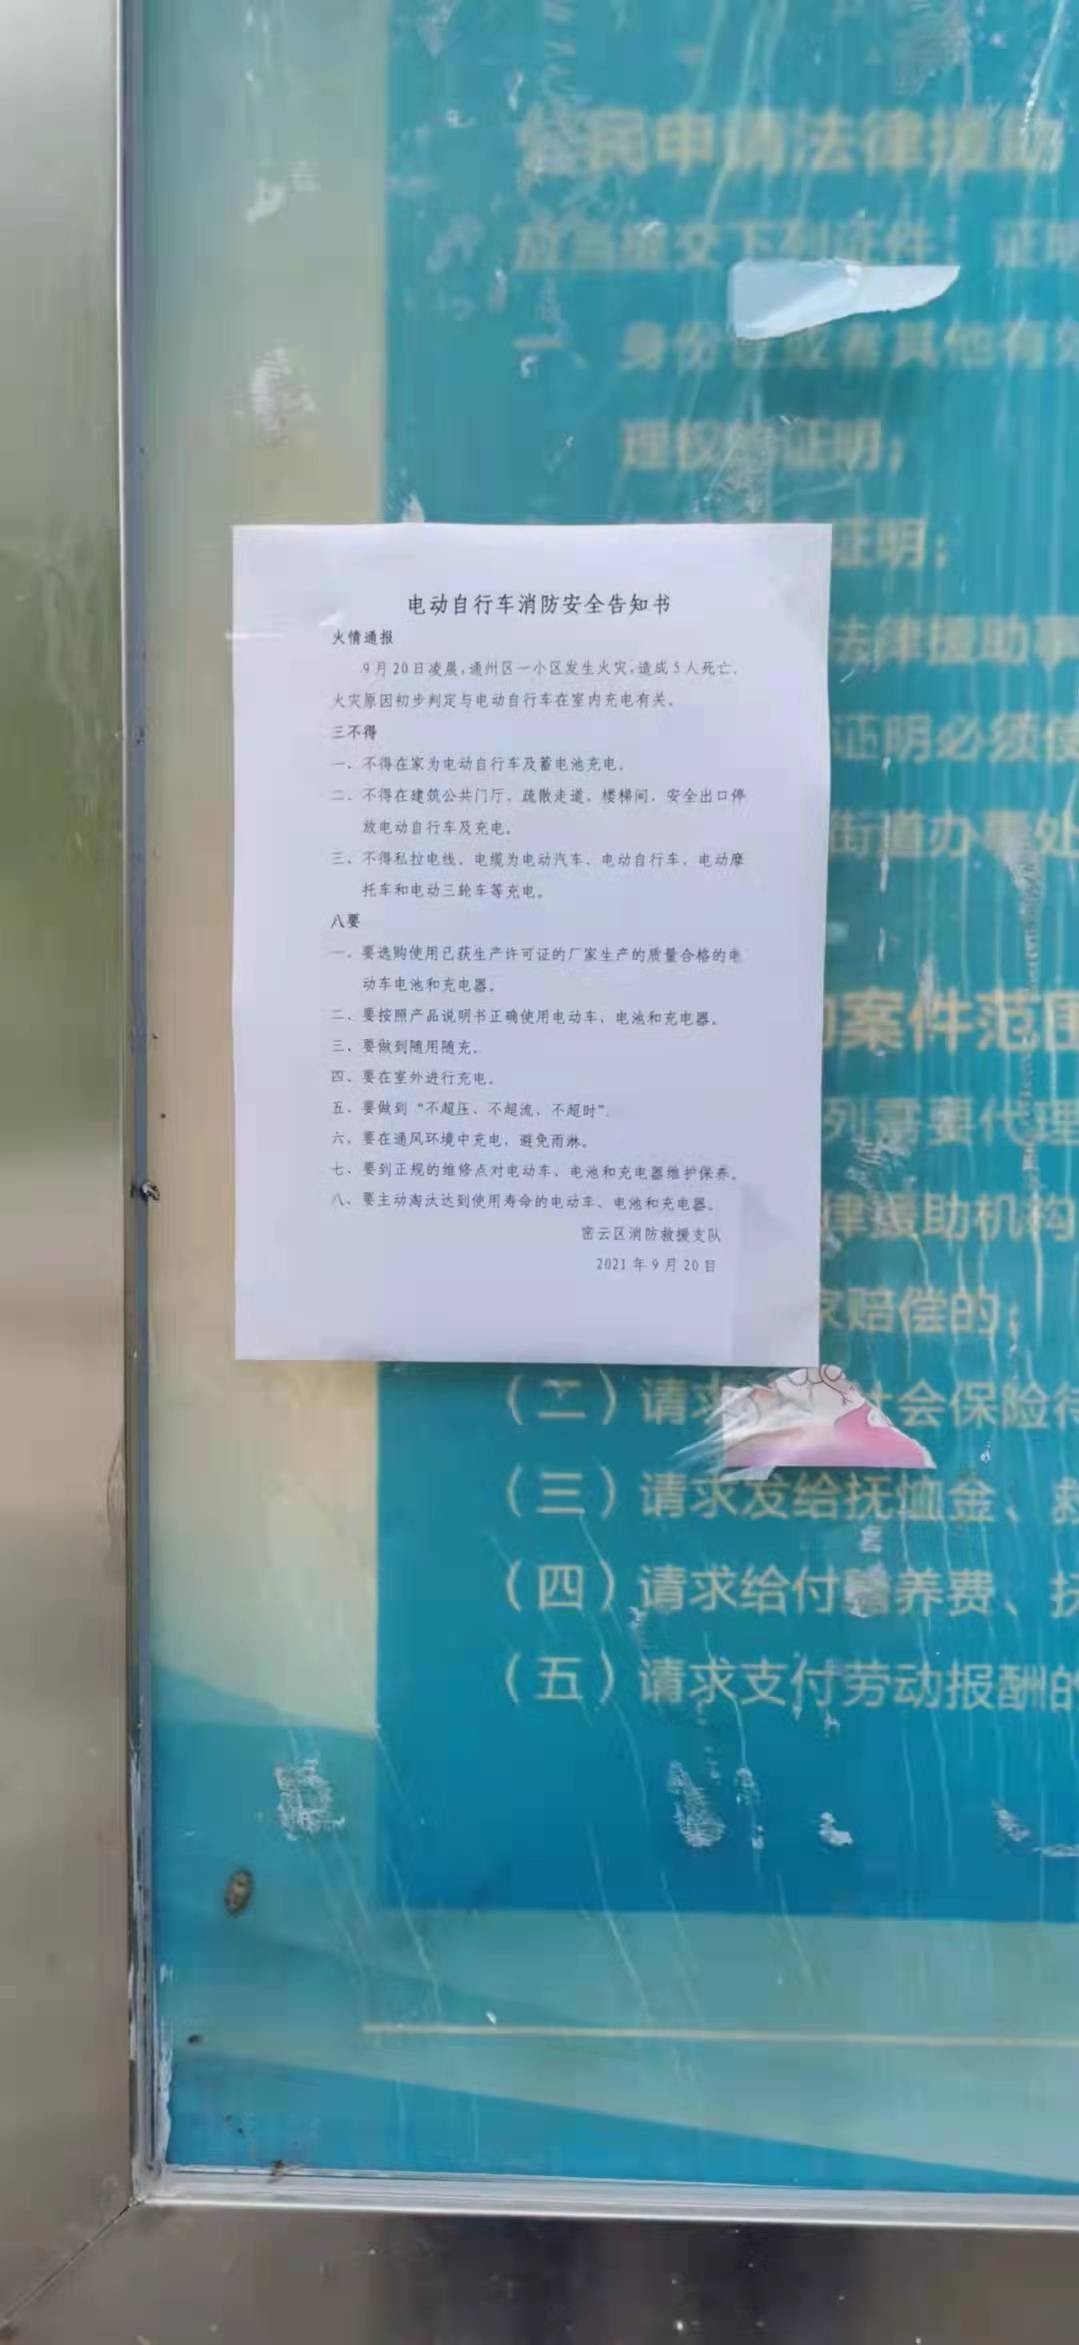 公民申请法律援助
应当提交下列证件、证明
一、身份证或者其他有效
理权的证明；
证明；
法律援助事
证明必须使
街道办事处
案件范围
列需要代理
律援助机构
家赔偿的；
（二）请求 社会保险待
（三）请求发给抚恤金、救
（四）请求给付赡养费、抚
（五）请求支付劳动报酬的
电动自行车消防安全告知书
火情通报
9月20日凌晨，通州区一小区发生火灾，造成5人死亡，
火灾原因初步判定与电动自行车在室内充电有关。
三不得
一、不得在家为电动自行车及蓄电池充电。
二、不得在建筑公共门厅、疏散走道、楼梯间、安全出口停
放电动自行车及充电。
三、不得私拉电线、电缆为电动汽车、电动自行车、电动摩
托车和电动三轮车等充电。
八要
一、要选购使用已获生产许可证的厂家生产的质量合格的电
动车电池和充电器。
二、要按照产品说明书正确使用电动车、电池和充电器。
三、要做到随用随充。
四、要在室外进行充电。
五、要做到“不超压、不超流、不超时”。
六、要在通风环境中充电，避免雨淋。
七、要到正规的维修点对电动车、电池和充电器维护保养。
八、要主动淘汰达到使用寿命的电动车、电池和充电器。
密云区消防救援支队
2021年9月20日